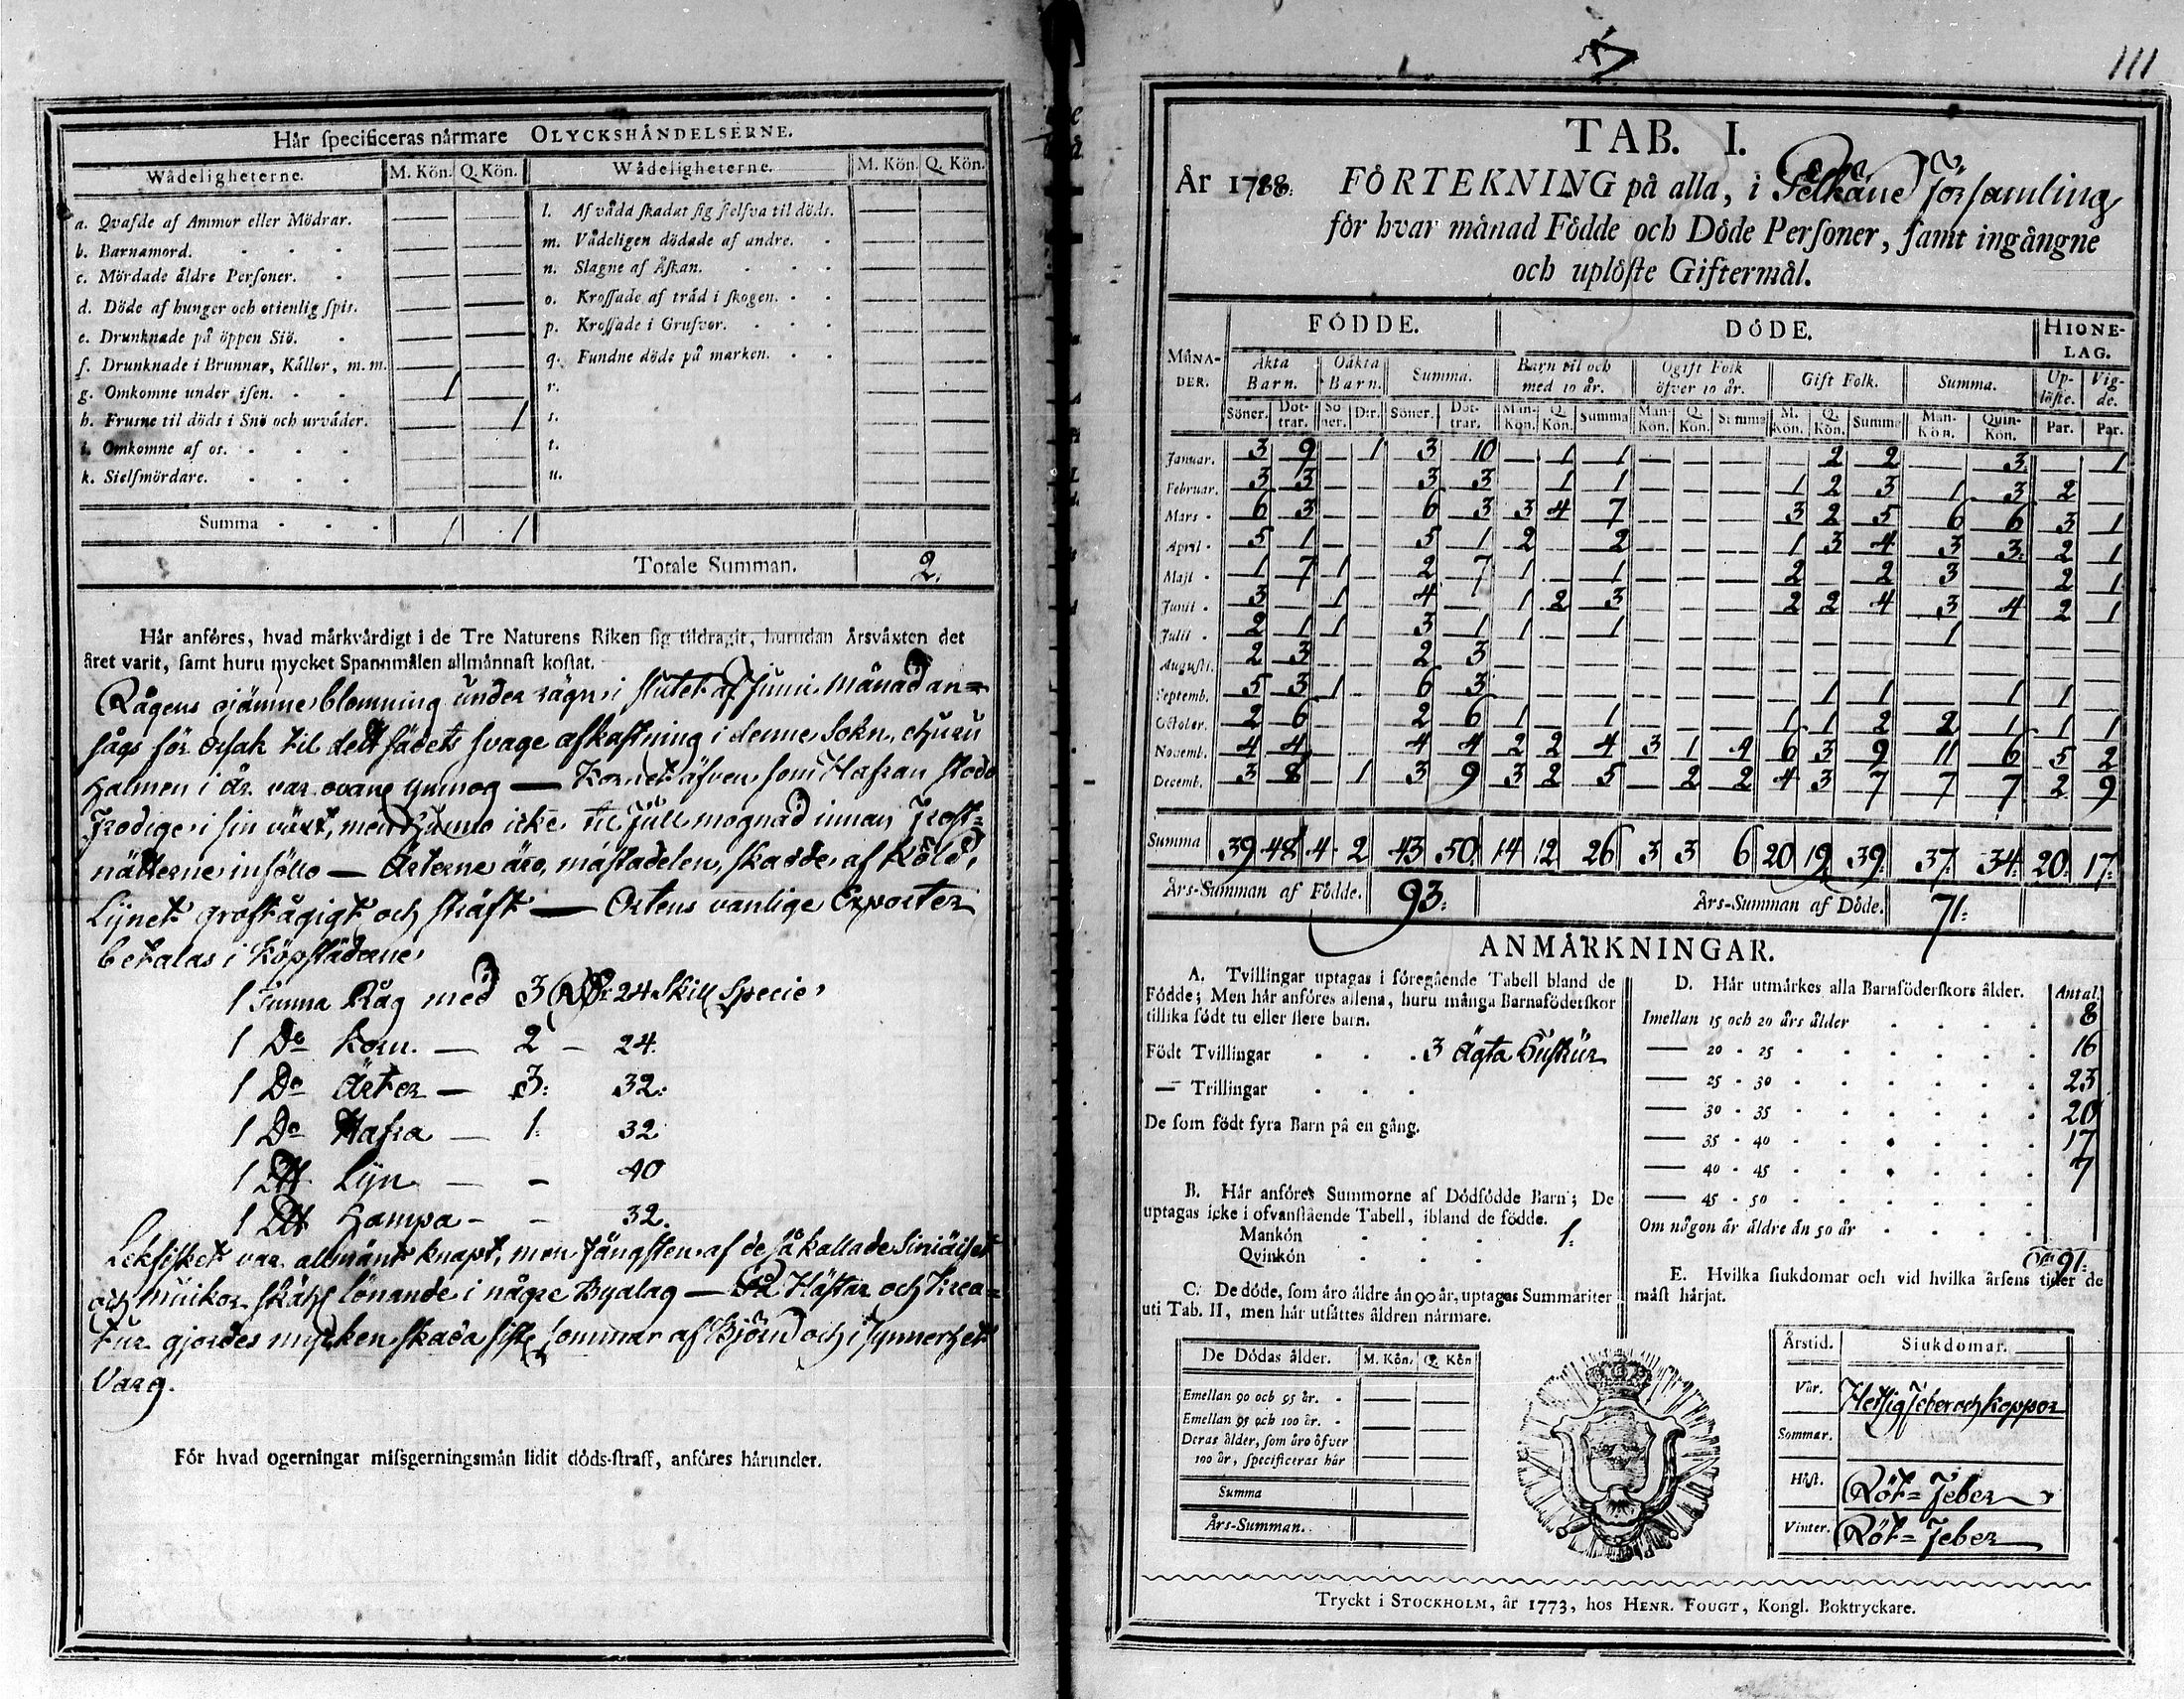 Hår specificeras nårmare OLYCKSHÅNDELSERNE.
Wådeligheterne. M. Kön. Q. Kön. Wådeligheterne. M. Kön. Q. Kön.
a. Qvafde af Ammor eller Mödrar. — —
b. Barnamord. — —
c. Mördade åldre Personer. — —
d. Döde af hunger och otienlig spis. — —
e. Drunknade på öppen Siö. — —
f. Drunknade i Brunnar, Kållor, m.m. — —
g. Omkomne under isen. 1 —
h. Frusne til döds i Snö och urvåder. — 1
i. Omkomne af os. — —
k. Sielfmördare. — —
l. Af våda skadat sig sielfva til döds. — —
m. Vådeligen dödade af andre. — —
n. Slagne af Åskan. — —
o. Krossade af tråd i skogen. — —
p. Krossade i Grufvor. — —
q. Fundne döde på marken. — —
r. — —
s. — —
t. — —
u. — —
Summa 1 1
Totale Summan. 2.
Hår anföres, hvad mårkvårdigt i de Tre Naturens Riken sig tildragit, hurudan Årsvåxten det
året varit, samt huru mycket Spannmålen allmånnast kostat.
Rågens ojämne blomning under rägn i slutet af Junii Månad an=
sågs för orsak til dess sädets svage afkastning i denne Sokn, ehuru
halmen i år var ymnog — Kornet äfven som Hafran stodo
frodige i sin växt, men hunno icke til full mognad innan frost=
nätterne inföllo — Ärterne äro, mästadelen, skadde af Köld,
Lijnet groft ägigt och sträft — Ortens vanlige Exporter
betalas i Köpstäderne,
1 Tunna Råg med 3 RD: 24 Skill Specie,
1 Do Korn — 2 — 24.
1 Do Ärter — 3: 32:
1 Do Hafra — 1: 32
1 Lijn — - 40
1 Hampa - - 32.
Lekfisket var allmänt knapt, men fångsten af de så kallade
och muikor lönande i någre Byalag — På Hästar och Krea=
tur gjordes mycken skada siste sommar af Björn och i synnerhet
Varg.
För hvad ogerningar missgerningsmån lidit döds-straff, anföres hårunder.
111
TAB. I.
År 1788. FÖRTEKNING på alla, i Pelkäne Församling
för hvar månad Födde och Döde Personer, samt ingångne
och uplöste Giftermål.
MÅNADER. FÖDDE. DÖDE. HIONELAG.
Åkta Barn. Oåkta Barn. Summa. Barn til och med 10 år. Ogift Folk öfver 10 år. Gift Folk. Summa. Uplöste. Vigde.
Söner. Döttrar. Söner. D:r. Söner. Döttrar. Mankön. Q. Kön. Summa Mankön. Q. Kön. Summa M. Kön. Q. Kön. Summa Mankön. Quinkön. Par. Par.
Januar. 3 9 — 1 3 10 — 1 1 — — — 2 2 — 3. — 1
Februar. 3 3 — — 3 3 — 1 1 — — — 1 2 3 1 3 2 —
Mars 6 3 — — 6 3 3 4 7 — — — 3 2 5 6 6 3 1
April 5 1 — — 5 1 2 2 — — — 1 3 4 3 3: 2 1
Maji 1 7 1 — 2 7 1 — 1 — — — 2 — 2 3 — 2 1
Junii 3 1 4 — 1 2 3 — — — 2 2 4 3 4 2 1
Julii 2 1 1 — 3 1 1 — 1 — — — — — — 1 — — —
Augusti. 2 3 — — 2 3 — — — — — — — — — — — — —
Septemb. 5 3 1 — 6 3 — — — — — — — 1 1 — 1 1 —
October. 2 6 2 6 1 — 1 — — — 1 1 2 2 1 1 1
Novemb. 4 4 — — 4 4 2 2 4 3 1 4 6 3 9 11 6 5 2
Decemb. 3 8 — 1 3 9 3 2 5 2 2 4 3 7 7 7 2 9
Summa 39 48 4 2 43 50. 14 12 26 3 3 6 20 19 39: 37: 34: 20: 17:
Års-Summan af Födde. 93: Års-Summan af Döde. 71:
ANMÅRKNINGAR.
A. Tvillingar uptagas i föregående Tabell bland de
Födde; Men hår anföres allena, huru många Barnaföderskor
tillika födt tu eller flere barn.
Födt Tvillingar 3 Ägta Hustrur
— Trillingar
De som födt fyra Barn på en gång.
B. Hår anföres Summorne af Dödfödde Barn; De
uptagas icke i ofvanstående Tabell, ibland de födde.
Mankön 1:
Qvinkön
C. De döde, som åro åldre ån 90 år, uptagas Summariter
uti Tab. II, men hår utsåttes åldren nårmare.
De Dödas ålder. M. Kön. Q. Kön
Emellan 90 och 95 år. — —
Emellan 95 och 100 år. — —
Deras ålder, som åro öfver
100 år, specificeras hår — —
Summa
Års-Summan.
D. Hår utmårkes alla Barnföderskors ålder. Antal.
Imellan 15 och 20 års ålder 8
— 20 - 25 16
— 25 - 30 23
— 30 - 35 20
— 35 - 40 17
— 40 - 45 7
— 45 - 50
Om någon år åldre ån 50 år
91:
E. Hvilka siukdomar och vid hvilka årsens tider de
måst hårjat.
Årstid. Siukdomar.
Vår. Hetsig feber och koppor
Sommar.
Höst. Röt=feber
Vinter. Röt=feber
Tryckt i STOCKHOLM, år 1773, hos HENR. FOUGT, Kongl. Boktryckare.